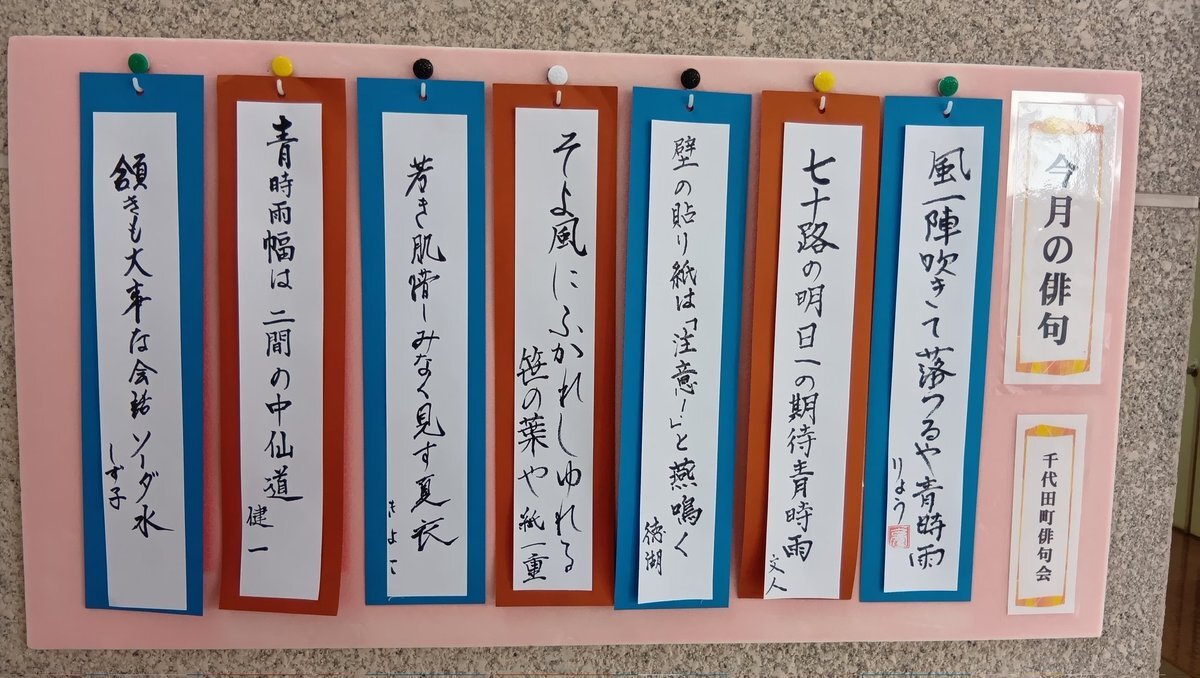 今月の俳句
千代田町俳句会
風一陣吹きて落つるや青時雨
りょう
七十路の明日への期待青時雨
文人
壁の貼り紙は「注意!」と燕鳴く
徳湖
そよ風にふかれしゆれる
笹の葉や紙一重
若き肌惜しみなく見す夏衣
きよこ
青時雨幅は二間の中仙道
健一
頷きも大事な会話ソーダ水
しず子